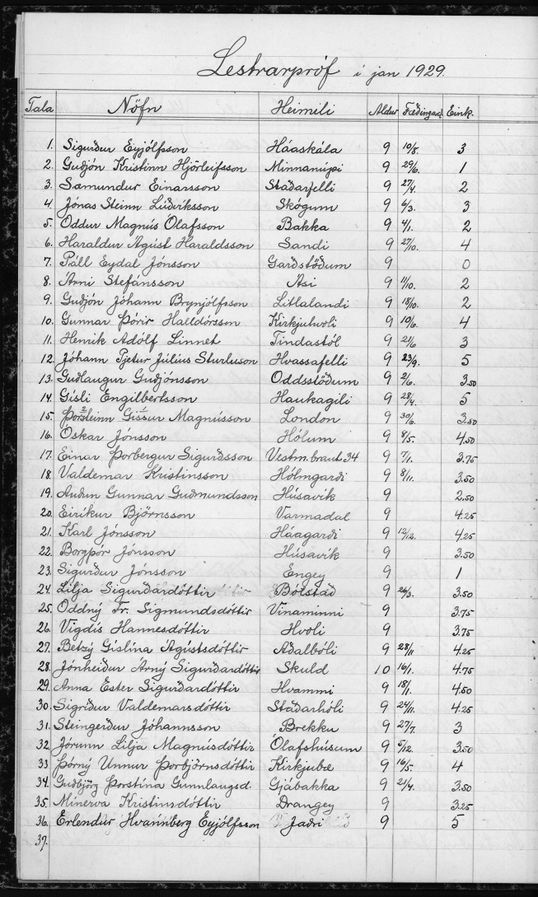 Lestrarpróf í jan 1929.
Tala Nöfn Heimili Aldur Fæðingard. Eink.
1. Sigurður Eyjólfsson Háaskála 9 10/8. 3
2. Guðjón Kristinn Hjörleifsson Minnanúpi 9 29/6. 1
3. Sæmundur Einarsson Staðarfelli 9 27/4. 2
4. Jónas Steinn Lúðvíksson Skógum 9 6/3. 3
5. Oddur Magnús Ólafsson Bakka 9 4/1. 2
6. Haraldur Ágúst Haraldsson Sandi 9 27/10. 4
7. Páll Eydal Jónsson Garðstöðum 9 0
8. Árni Stefánsson Ási 9 11/10. 2
9. Guðjón Jóhann Brynjólfsson Litlalandi 9 18/10. 2
10. Gunnar Þórir Halldórsson Kirkjuhvoli 9 10/6. 4
11. Henrik Adólf Linnet Tindastól 9 21/6. 3
12. Jóhann Pjetur Júlíus Sturluson Hvassafelli 9 23/9. 5
13. Guðlaugur Guðjónsson Oddsstöðum 9 2/6. 3.50
14. Gísli Engilbertsson Haukagili 9 28/4. 5
15. Þorsteinn Gissur Magnússon London 9 30/6. 3.50
16. Óskar Jónsson Hólum 9 8/5. 4.50
17. Einar Þorbergur Sigurðsson Vestm.braut 34 9 7/1. 3.75
18. Valdemar Kristinsson Hólmgarði 9 8/11. 3.50
19. Auðun Gunnar Guðmundsson Húsavík 9 2.50
20. Eiríkur Björnsson Varmadal 9 4.25
21. Karl Jónsson Háagarði 9 12/12. 4.25
22. Borgþór Jónsson Húsavík 9 3.50
23. Sigurður Jónsson Engey 9 1
24. Lilja Sigurðardóttir Bólstað 9 26/3. 3.50
25. Oddný Tr. Sigmundsdóttir Vinaminni 9 3.75
26. Vigdís Hannesdóttir Hvoli 9 3.75
27. Betzý Gíslína Ágústsdóttir Aðalbóli 9 28/11 4.25
28. Jónheiður Árný Sigurðardóttir Skuld 10 16/1. 4.75
29. Anna Ester Sigurðardóttir Hvammi 9 18/1. 4.50
30. Sigríður Valdemarsdóttir Staðarhóli 9 24/11. 4.25
31. Steingerður Jóhannsson Brekku 9 27/7. 3
32. Jórunn Lilja Magnúsdóttir Ólafshúsum 9 5/12. 3.50
33. Þórný Unnur Þorbjörnsdóttir Kirkjubæ 9 16/5. 4
34. Guðbjörg Þorstína Gunnlaugsd. Gjábakka 9 21/4. 3.50
35. Minerva Kristinsdóttir Drangey 9 3.25
36. Erlendur Hvannberg Eyjólfsson Jaðri 9 5
37.